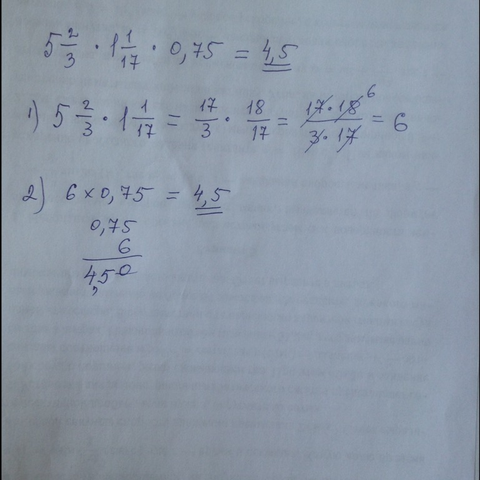 5 2/3 · 1 1/17 · 0,75 = 4,5
1) 5 2/3 · 1 1/17 = 17/3 · 18/17 = 17·18/3·17 6 = 6
2) 6 × 0,75 = 4,5
0,75
6
4,50